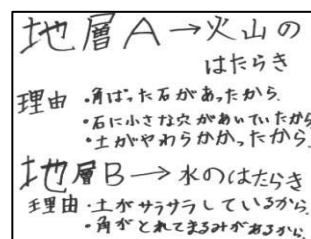 地層A→火山の
はたらき
理由・角ばった石があったから。
・石に小さな穴があいていたから
・土がやわらかかったから。
地層B→水のはたらき
理由・土がサラサラしているから。
・角がとれてまるみがあるから。